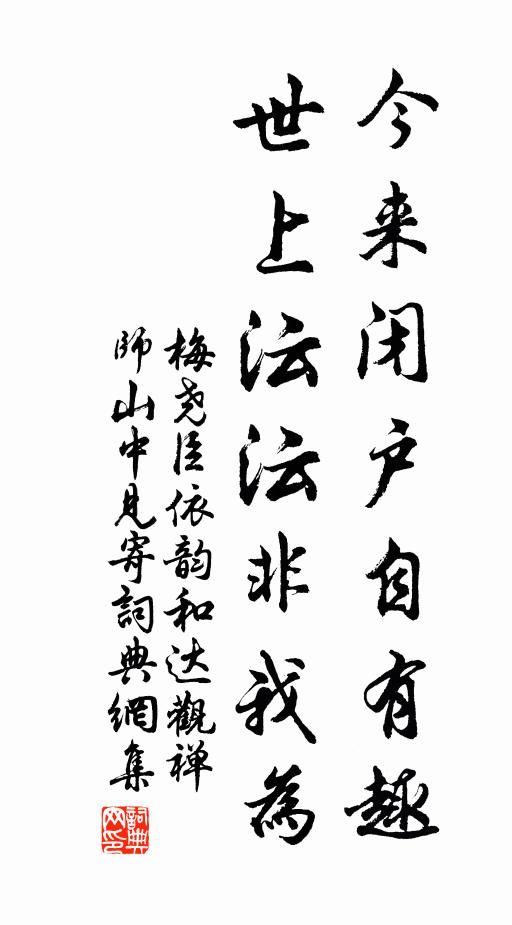 今来闭户自有趣
世上沄沄非我為
梅尧臣依韵和达觀禅
師山中見寄詞典網集
詞典
网印